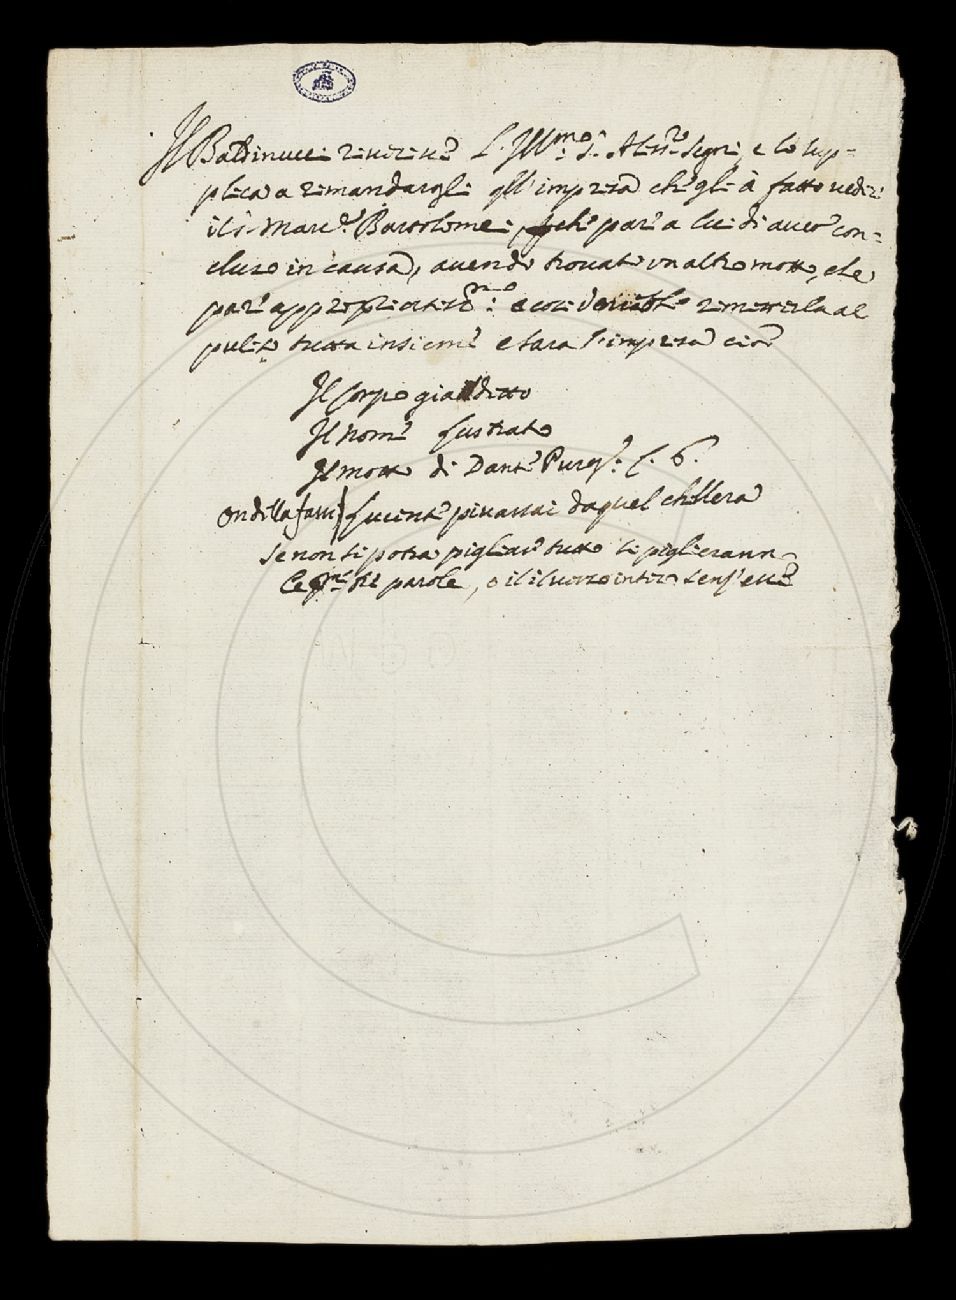 Il Baldinucci riverisce l'Ill.mo S. Aless.ro Segni, e lo sup=
plica a rimandargli qll'impresa che gli à fatto vedere
il S. Marc.e Bartolomei, che pare a lui di aver con=
cluso in causa, avendo trovato un altro motto, che
par appropriatiss.mo: e così vorrebbe rimetterla al
pulito tutta insieme e sarà l'impresa cioè
Il Corpo già detto
Il nome Lustrato
Il motto di Dante Purg. C. 6.
ond'ella fassi) lucente più assai di quel ch'ell'era
Se non si potrà pigliar tutto si piglieranno
le parole, o il verso intero